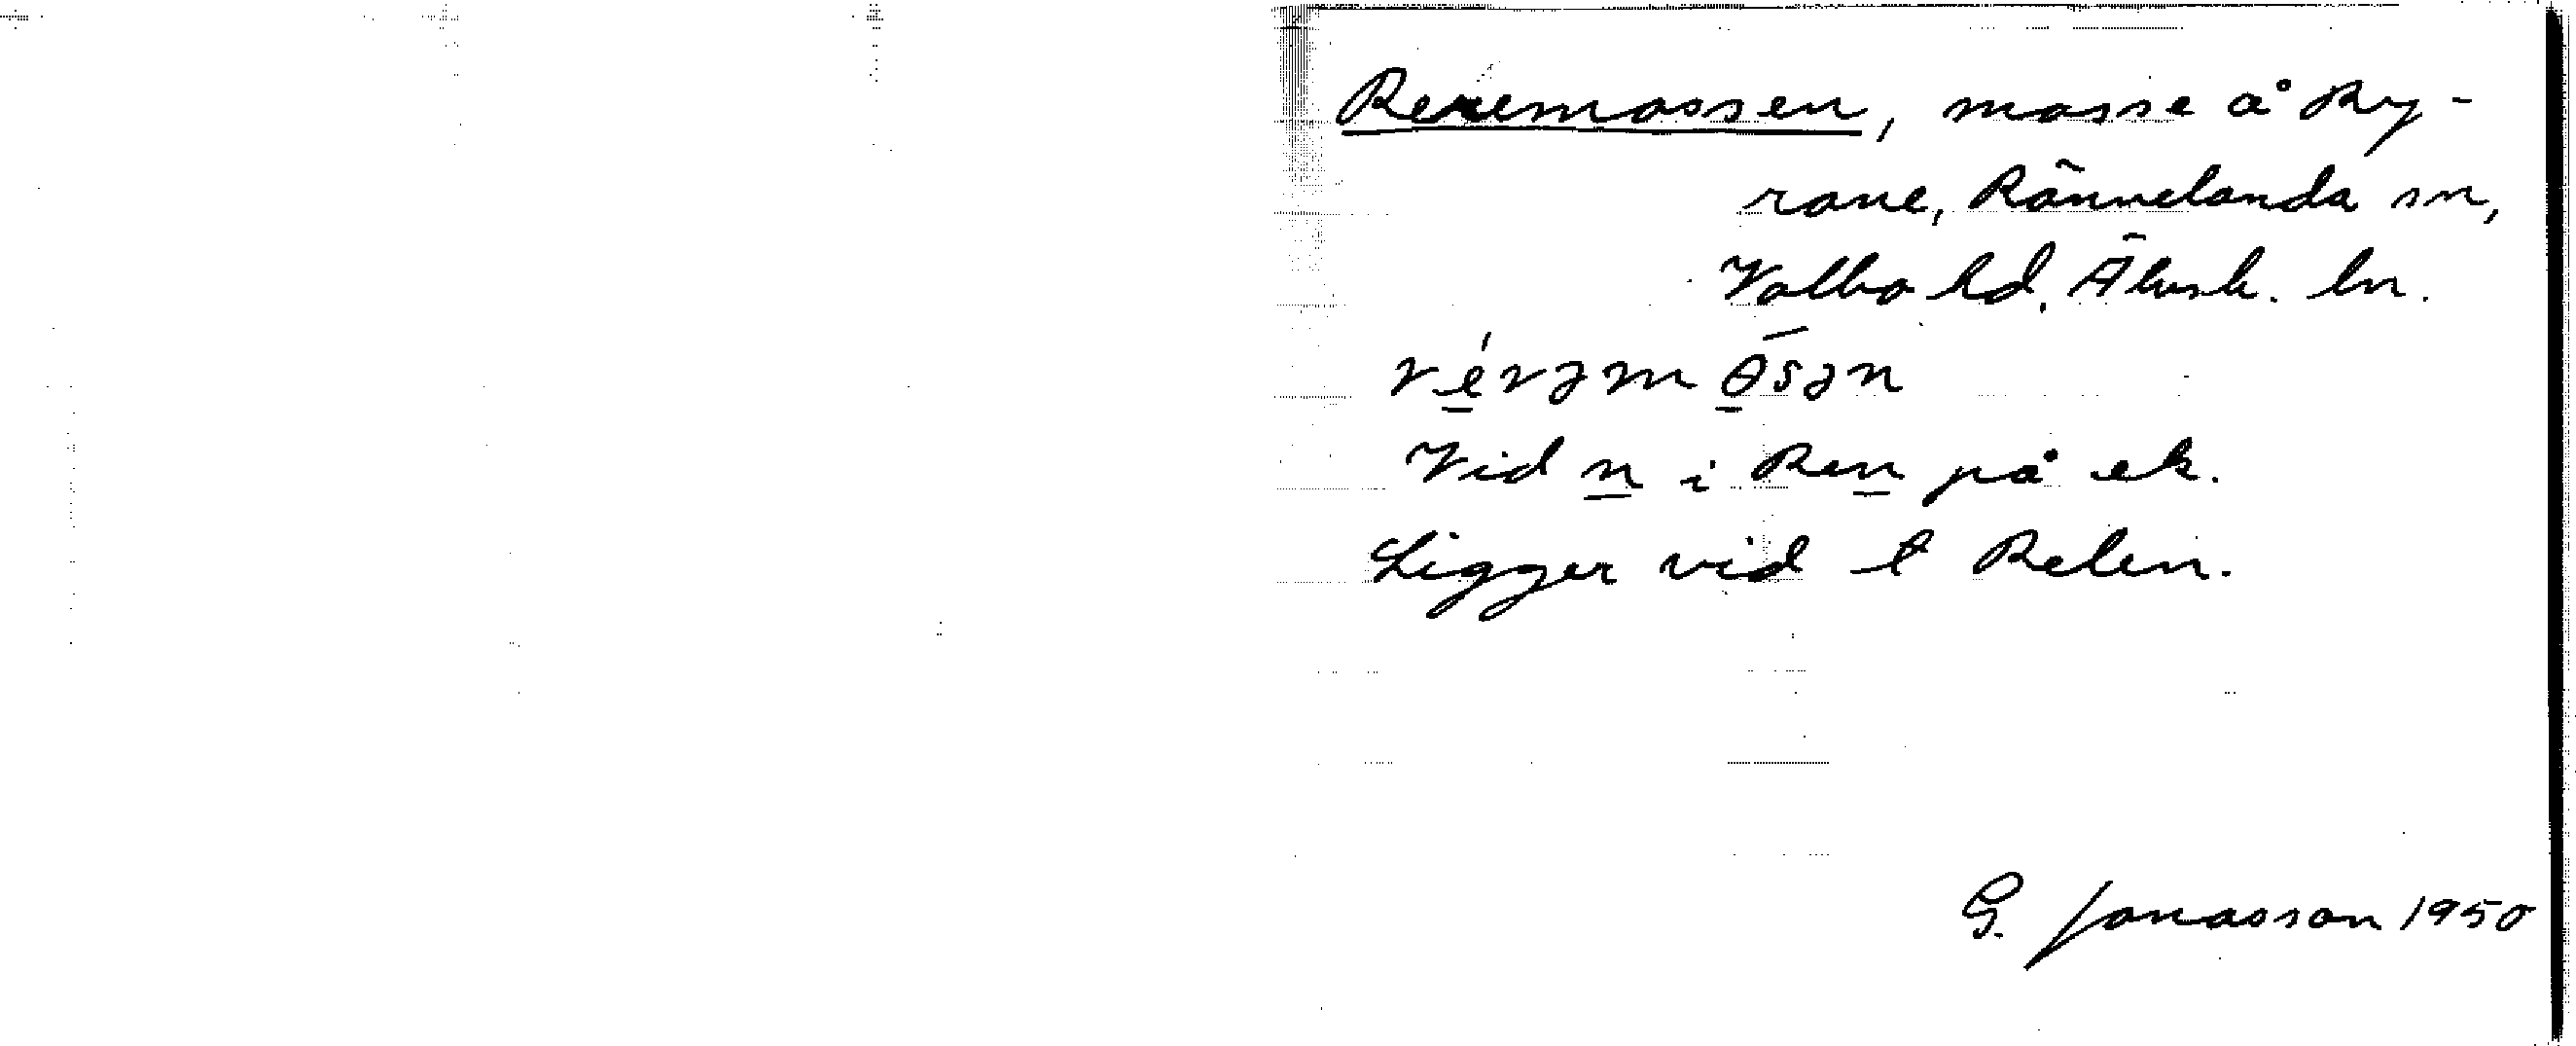 Reremossen, mosse å Ry-
rane, Rännelanda sn,
Valbo hd. Älvsb. ln.
Vid n i Ren på ek.
Ligger vid t Relen.
G. Jonasson 1950